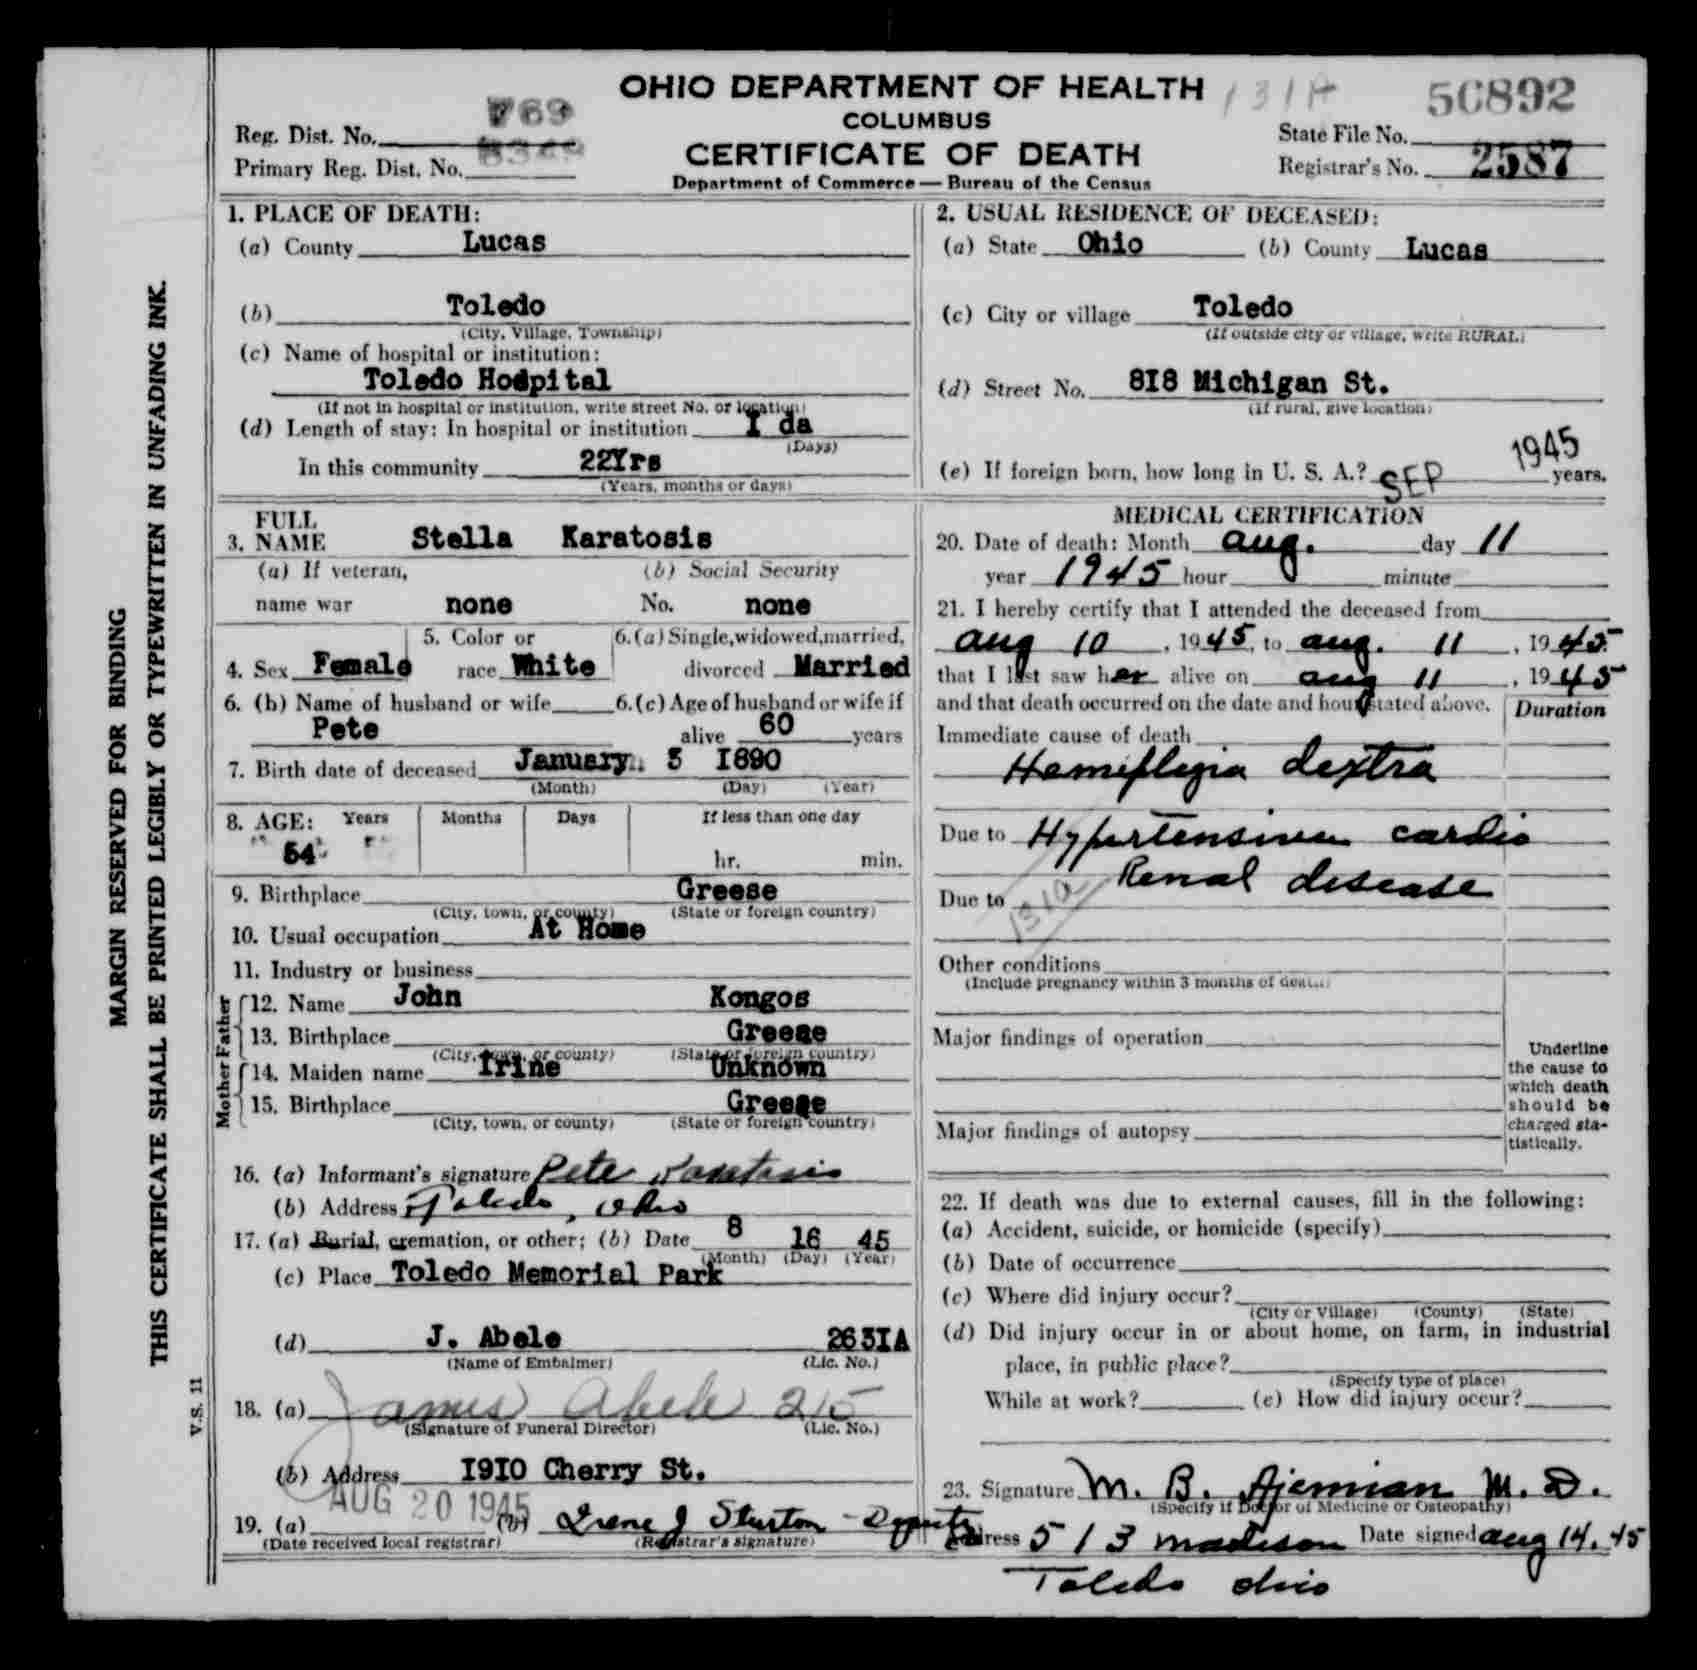 OHIO DEPARTMENT OF HEALTH 131A 50892
COLUMBUS
Reg. Dist. No. 769
State File No.
CERTIFICATE OF DEATH
Primary Reg. Dist. No.
Registrar's No. 2587
Department of Commerce — Bureau of the Census
MARGIN RESERVED FOR BINDING
THIS CERTIFICATE SHALL BE PRINTED LEGIBLY OR TYPEWRITTEN IN UNFADING INK.
V.S. 11
1. PLACE OF DEATH:
(a) County Lucas
(b) Toledo
(City, Village, Township)
(c) Name of hospital or institution:
Toledo Hospital
(If not in hospital or institution, write street No. or location)
(d) Length of stay: In hospital or institution I da
(Days)
In this community 22Yrs
(Years, months or days)
2. USUAL RESIDENCE OF DECEASED:
(a) State Ohio (b) County Lucas
(c) City or village Toledo
(If outside city or village, write RURAL)
(d) Street No. 8I8 Michigan St.
(If rural, give location)
(e) If foreign born, how long in U. S. A.? SEP 1945 years.
3. FULL NAME Stella Karatosis
(a) If veteran, name war none
(b) Social Security No. none
4. Sex Female
5. Color or race White
6. (a) Single, widowed, married, divorced Married
6. (b) Name of husband or wife
Pete
6. (c) Age of husband or wife if alive 60 years
7. Birth date of deceased January 3 I890
(Month) (Day) (Year)
8. AGE: Years Months Days If less than one day
54 hr. min.
9. Birthplace Greese
(City, town, or county) (State or foreign country)
10. Usual occupation At Home
11. Industry or business
Father
12. Name John Kongos
13. Birthplace Greece
(City, town, or county) (State or foreign country)
Mother
14. Maiden name Irine Unknown
15. Birthplace Greece
(City, town, or county) (State or foreign country)
16. (a) Informant's signature Pete Karatosis
(b) Address Toledo, Ohio
17. (a) Burial, cremation, or other; (b) Date 8 16 45
(Month) (Day) (Year)
(c) Place Toledo Memorial Park
(d) J. Abele 263IA
(Name of Embalmer) (Lic. No.)
18. (a) James Abele 215
(Signature of Funeral Director) (Lic. No.)
(b) Address I9I0 Cherry St.
19. (a) AUG 20 1945 (b) Irene J Sturton - Deputy
(Date received local registrar) (Registrar's signature)
MEDICAL CERTIFICATION
20. Date of death: Month Aug. day 11
year 1945 hour minute
21. I hereby certify that I attended the deceased from
Aug 10, 1945, to Aug. 11, 1945
that I last saw her alive on Aug 11, 1945
and that death occurred on the date and hour stated above. Duration
Immediate cause of death
Hemiplegia dextra
Due to Hypertensive cardio
Renal disease
Due to 131a
Other conditions
(Include pregnancy within 3 months of death)
Major findings of operation
Major findings of autopsy
Underline
the cause to
which death
should be
charged sta-
tistically.
22. If death was due to external causes, fill in the following:
(a) Accident, suicide, or homicide (specify)
(b) Date of occurrence
(c) Where did injury occur?
(City or Village) (County) (State)
(d) Did injury occur in or about home, on farm, in industrial
place, in public place?
(Specify type of place)
While at work? (e) How did injury occur?
23. Signature M. B. Ajemian M. D.
(Specify if Doctor of Medicine or Osteopathy)
Address 513 Madison Date signed Aug 14, 45
Toledo Ohio